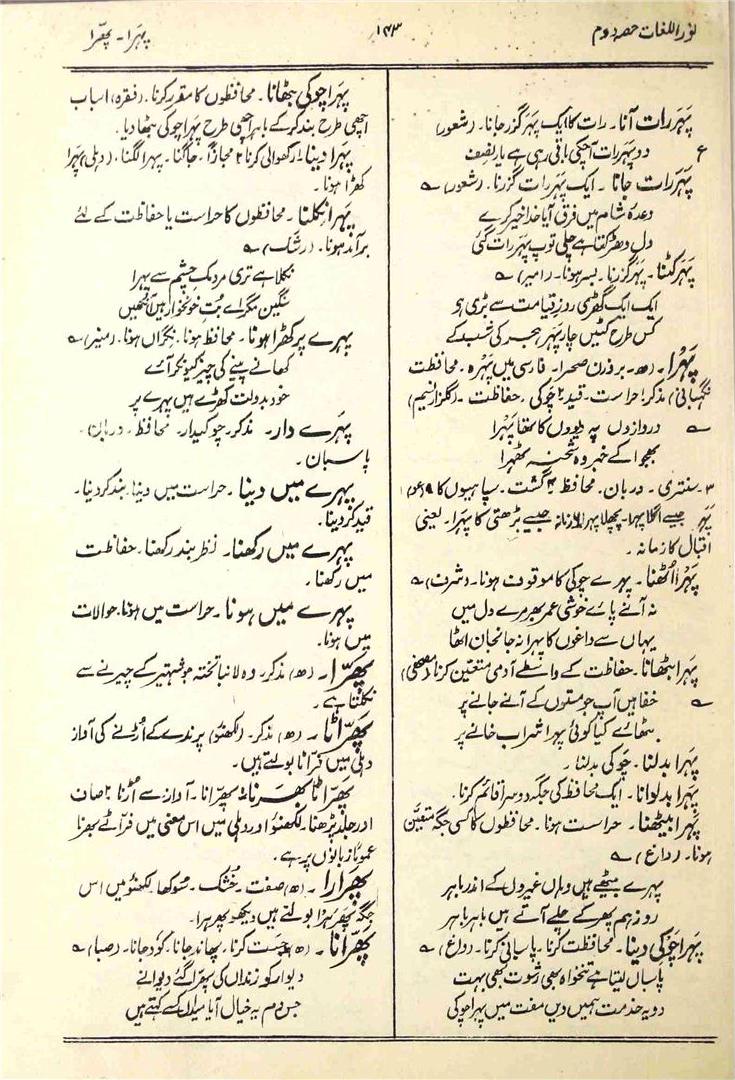 نور اللغات حصہ دوم
۱۴۳
پہرا - پھرّا
پَہَر رات آنا ۔ رات کا ایک پہر گزر جانا ۔ (شعور)
ع دوپہر رات آچکی باقی رہی ہے یا نصف
پَہَر رات جانا ۔ ایک پہر رات گزرنا ۔ (شعور) ؎
وعدۂ شام میں فرق آیا خدا خیر کرے
دل دھڑکتا ہے چلی توپ پہر رات گئی
پَہَر کٹنا ۔ پہر گزرنا ۔ بسر ہونا ۔ (امیر) ؎
ایک ایک گھڑی روزِ قیامت سے بڑی ہو
کس طرح کٹیں چار پہر ہجر کی شب کے
پَہْرا ۔ (ھ ۔ بروزن صحرا ۔ فارسی میں پہرہ ۔ محافظت
نگہبانی) مذکر ۱ حراست ۔ قید ۲ چوکی ۔ حفاظت ۔ (گلزار نسیم)
؎ دروازوں پہ دیووں کا تھا پہرا
بھجوا کے خبر وہ شحنہ ٹھہرا
۳ ۔ سنتری ۔ دربان ۔ محافظ ۴ گشت ۔ سپاہیوں کا ۵
جیسے اگلا پہرا ۔ پچھلا پہرا ۶ زمانہ جیسے بڑھتی کا پہرا ۔ یعنی
اقبال کا زمانہ ۔
پَہْرا اُٹھنا ۔ پہرے چوکی کا موقوف ہونا ۔ (شرف) ؎
نہ آنے پائے خوشی عمر بھر مرے دل میں
یہاں سے داغوں کا پہرا نہ جانجاں اٹھا
پَہْرا بٹھانا ۔ حفاظت کے واسطے آدمی متعین کرنا ۔ (مصحفی)
؎ خفا ہیں آپ جو مستوں کے آنے جانے پر
بٹھائے کیا کوئی پہرا شراب خانے پر
پَہْرا بدلنا ۔ چوکی بدلنا ۔
پَہْرا بدلوانا ۔ ایک محافظ کی جگہ دوسرا قائم کرنا ۔
پَہْرا بیٹھنا ۔ حراست ہونا ۔ محافظوں کا کسی جگہ متعیَّن
ہونا ۔ (داغ) ؎
پہرے بیٹھے ہیں وہاں غیروں کے اندر باہر
روز ہم پھر کے چلے آتے ہیں باہر باہر
پَہْرا چَوکی دینا ۔ محافظت کرنا ۔ پاسبانی کرنا ۔ (داغ) ؎
پاسباں لیتا ہے تنخواہ بھی رشوت بھی بہت
دو یہ خدمت ہمیں دیں مفت میں پہرا چوکی
پَہْرا چوکی بٹھانا ۔ محافظوں کا مقرر کرنا ۔ (فقرہ) اسباب
اچھی طرح بند کر کے باہر اچھی طرح پہرا چوکی بٹھا دیا ۔
پَہْرا دینا ۱ رکھوالی کرنا ۲ مجازاً ۔ جاگنا ۔ پہرا لگنا ۔ (دہلی) پہرا
کھڑا ہونا ۔
پَہْرا نکلنا ۔ محافظوں کا حراست یا حفاظت کے لئے
برآمد ہونا ۔ (رشک) ؎
نکلا ہے تری مردمک چشم سے پہرا
سنگین مگر اے بُتِ خونخوار ہیں آنکھیں
پہرے پر کھڑا ہونا ۔ محافظ ہونا ۔ نگراں ہونا ۔ (منیر) ؎
کھانے پینے کی چیز کیونکر آئے
خود بدولت کھڑے ہیں پہرے پر
پہرے دار ۔ مذکر ۔ چوکیدار ۔ محافظ ۔ دربان ۔
پاسبان ۔
پہرے میں دینا ۔ حراست میں دینا ۔ بند کر دینا ۔
قید کر دینا ۔
پہرے میں رکھنا ۔ نظر بند رکھنا ۔ حفاظت
میں رکھنا ۔
پہرے میں ہونا ۔ حراست میں ہونا ۔ حوالات
میں ہونا ۔
پھرّا ۔ (ھ) مذکر ۔ وہ لانبا تختہ جو شہتیر کے چیرنے سے
نکلتا ہے ۔
پھرّاٹا ۔ (ھ) مذکر ۔ (لکھنؤ) پرندے کے اڑنے کی آواز
دہلی میں فرّاٹا بولتے ہیں ۔
پھرّاٹا بھرنا ۔ پھرّانا ۔ آواز سے اڑنا ۲ صاف
اور جلد پڑھنا ۔ لکھنؤ اور دہلی میں اس معنی میں فرّاٹے بھرنا
عموماً زبانوں پر ہے ۔
پھرّارا ۔ (ھ) صفت ۔ خشک ۔ سوکھا ۔ لکھنؤ میں اس
جگہ پھرہرا بولتے ہیں دیکھو پھرہرا ۔
پھرّانا ۔ (ھ) جست کرنا ۔ پھاند جانا ۔ کود جانا ۔ (صبا) ؎
دیوار کو زنداں کی پھرّا گئے دیوانے
جس دم یہ خیال آیا میداں کسے کہتے ہیں